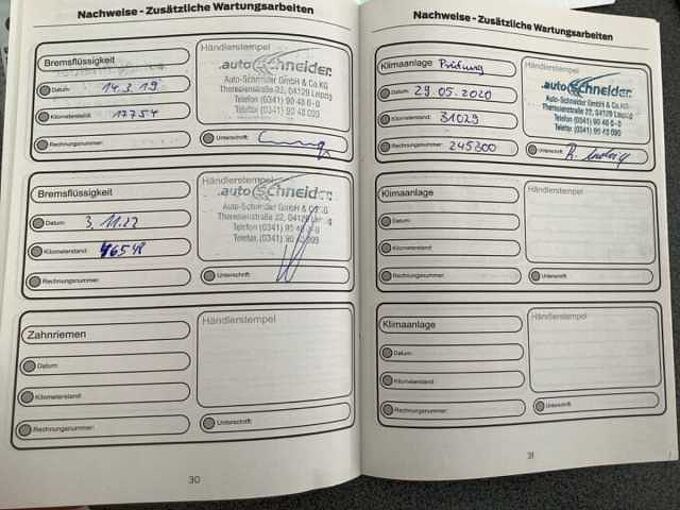 Nachweise - Zusätzliche Wartungsarbeiten
Bremsflüssigkeit
Datum: 14.3.19
Kilometerstand: 17754
Rechnungsnummer:
Händlerstempel
autoSchneider.
Auto-Schneider GmbH & Co.KG
Theresienstraße 22, 04129 Leipzig
Telefon (0341) 90 48 0-0
Telefax (0341) 90 48 099
Unterschrift:
Bremsflüssigkeit
Datum: 3.11.22
Kilometerstand: 46548
Rechnungsnummer:
Händlerstempel
autoSchneider.
Auto-Schneider GmbH & Co.KG
Theresienstraße 22, 04129
Telefon (0341) 90 48
Telefax (0341) 90 099
Unterschrift:
Zahnriemen
Datum:
Kilometerstand:
Rechnungsnummer:
Händlerstempel
Unterschrift:
30
Nachweise - Zusätzliche Wartungsarbeiten
Klimaanlage Prüfung
Datum: 29.05.2020
Kilometerstand: 31029
Rechnungsnummer: 245300
Händlerstempel
autoSchneider.
Auto-Schneider GmbH & Co.KG
Theresienstraße 22, 04129 Leipzig
Telefon (0341) 90 48 0-0
Telefax (0341) 90 48 099
Unterschrift:
Klimaanlage
Datum:
Kilometerstand:
Rechnungsnummer:
Händlerstempel
Unterschrift:
Klimaanlage
Datum:
Kilometerstand:
Rechnungsnummer:
Händlerstempel
Unterschrift:
31